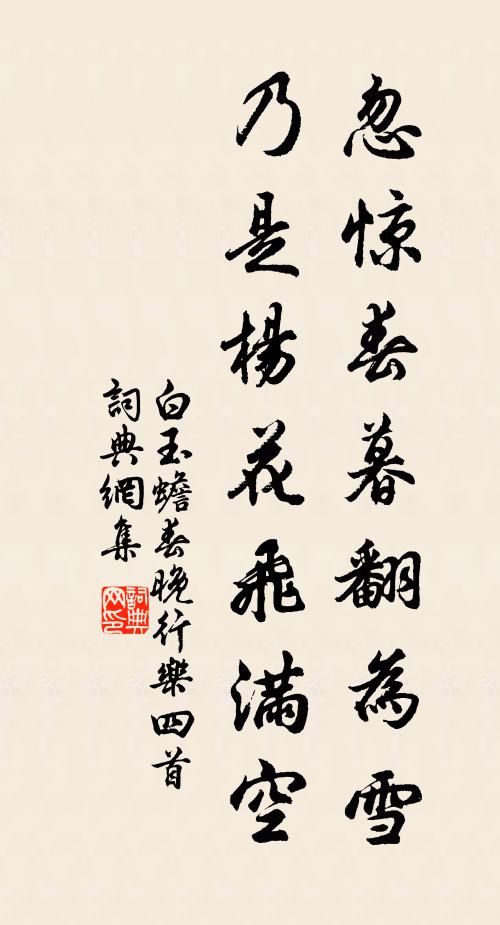 忽惊春暮翻為雪
乃是楊花飛滿空
白玉蟾春晚行樂四首
詞典網集
詞典网印